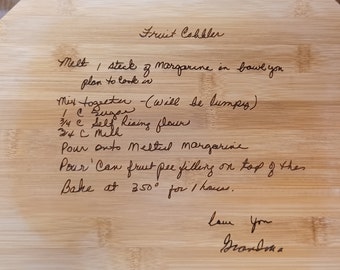 Fruit Cobbler
Melt 1 stick of Margarine in bowl you
plan to cook in
Mix together - (Will be lumpy)
1 C Sugar
3/4 C Self Rising flour
3/4 C Milk
Pour onto Melted Margarine
Pour Can fruit pie filling on top of this
Bake at 350° for 1 hour.
Love You
Grandma